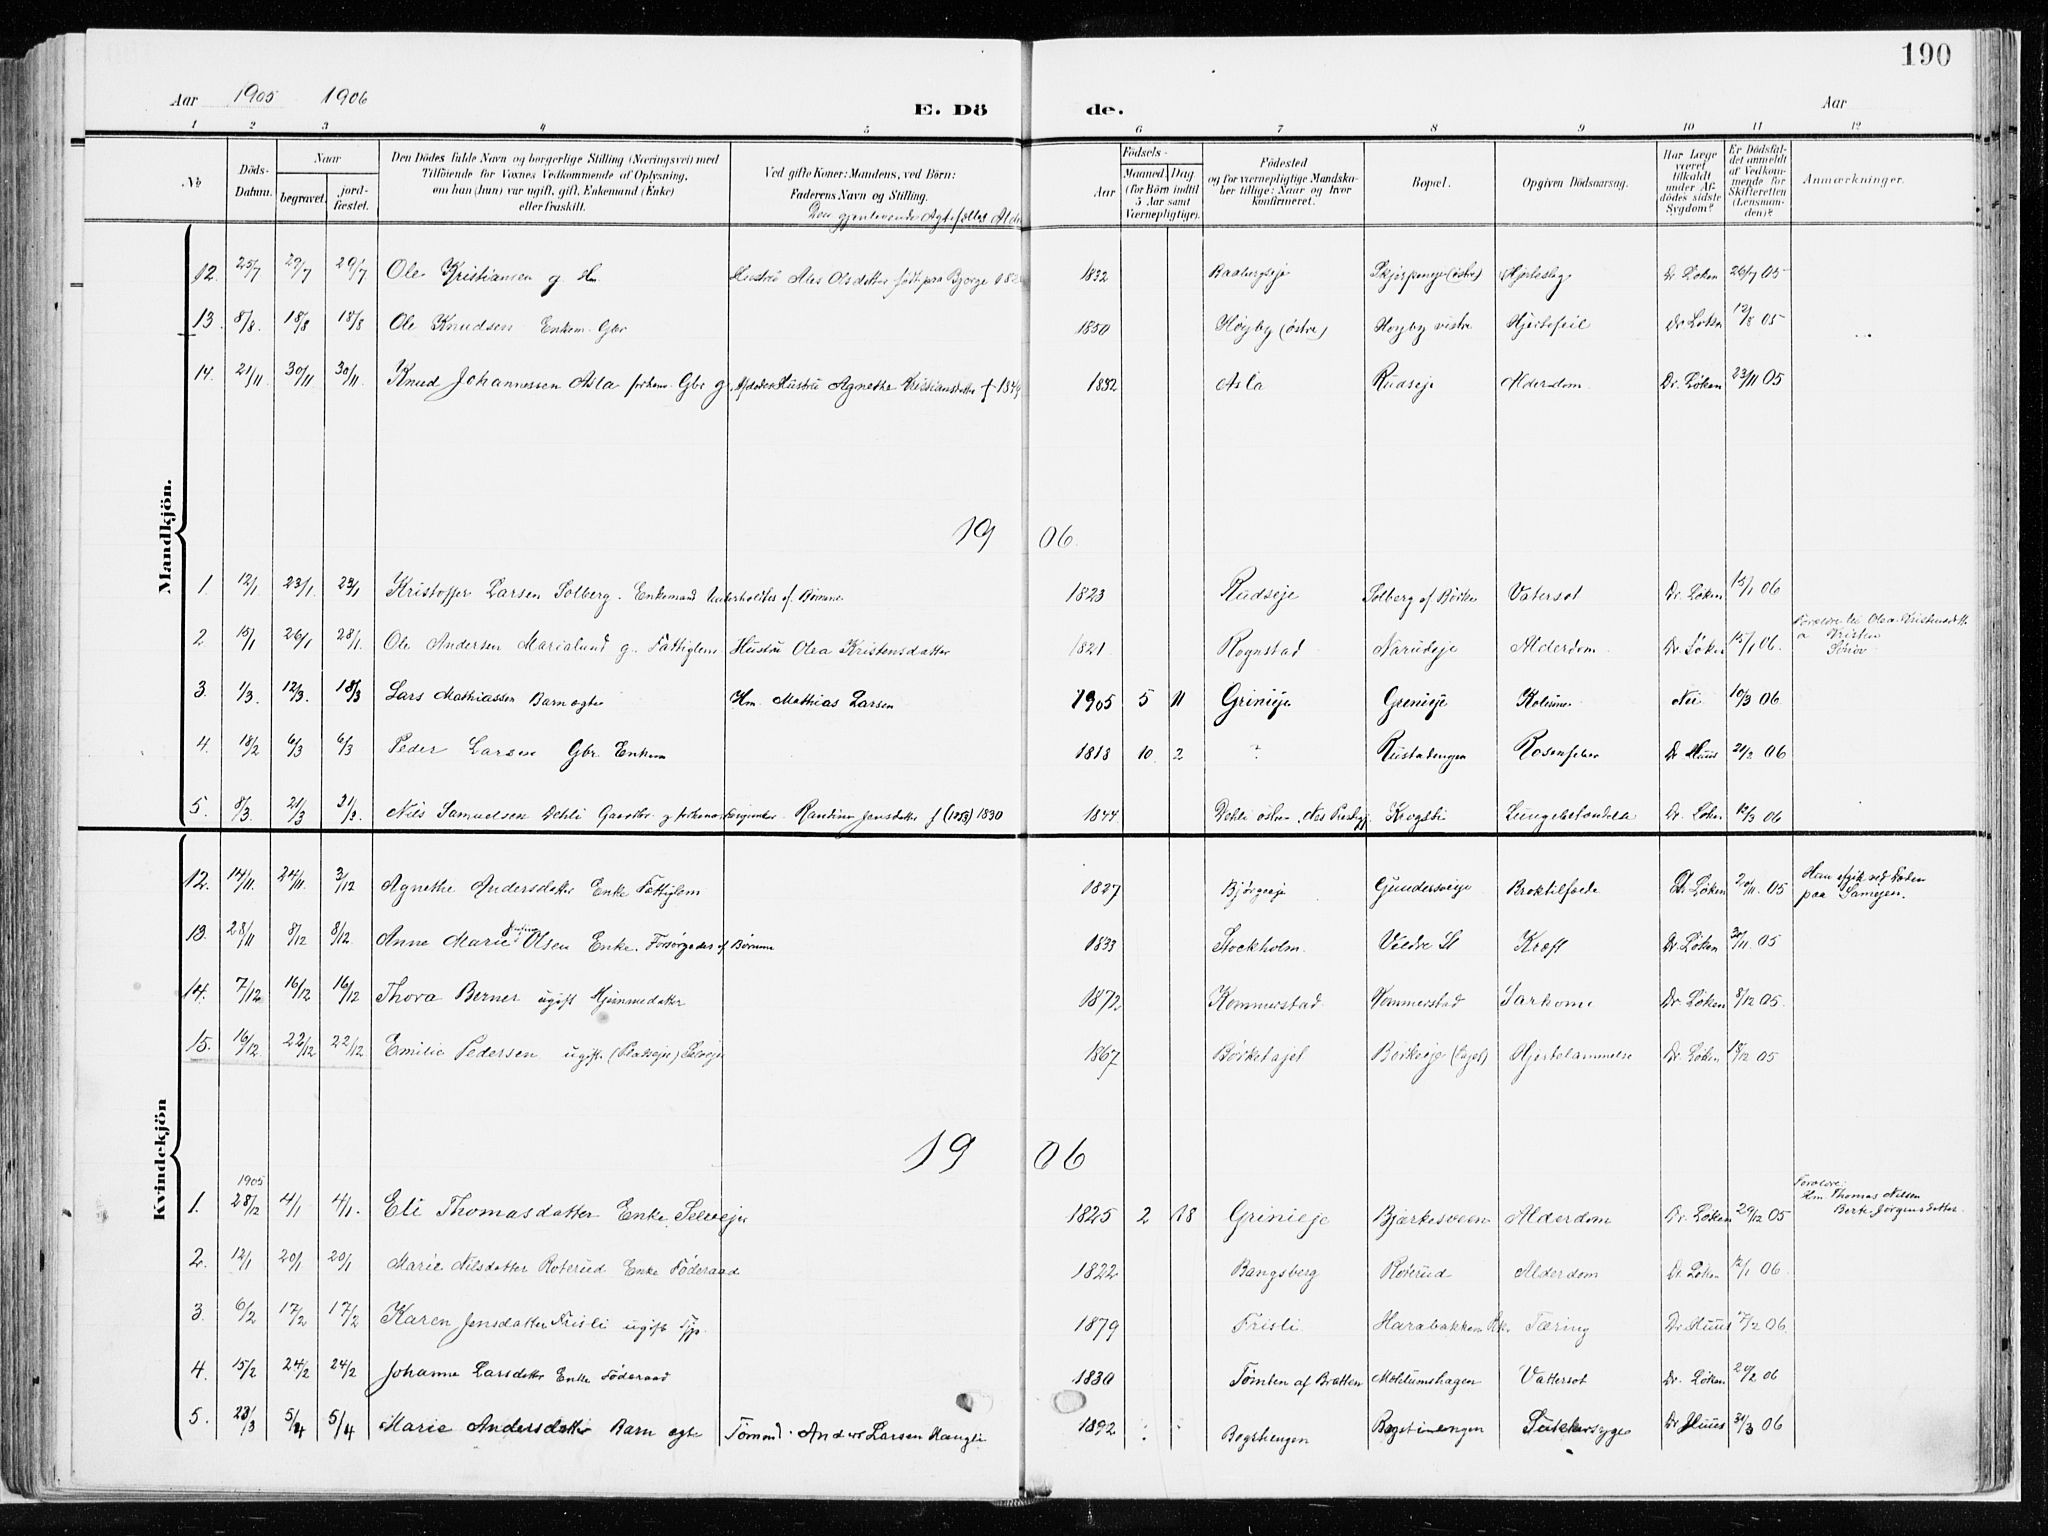 190
Aar 1905 1906
E. Dö de.
Aar
1 2 3 4 5 6 7 8 9 10 11 12
No
Döds-Datum.
Naar
begravet.
jord-fæstet.
Den Dödes fulde Navn og borgerlige Stilling (Næringsvei) med
Tilföiende for Voxnes Vedkommende af Oplysning,
om han (hun) var ugift, gift, Enkemand (Enke)
eller fraskilt.
Ved gifte Koner: Mandens, ved Börn:
Faderens Navn og Stilling.
Den gjenlevende Ægtefælles Alder
Födsels-
Aar
Maaned Dag
(for Börn indtil
5 Aar samt
Værnepligtige).
Födested
og for værnepligtige Mandska-
ber tillige: Naar og hvor
konfirmeret.
Bopæl.
Opgiven Dödsaarsag.
Har Læge
været
tilkaldt
under Af-
dödes sidste
Sygdom?
Er Dödsfal-
det anmeldt
af Vedkom-
mende for
Skifteretten
(Lensman-
den)?
Anmærkninger.
Mandkjön.
12. 25/7 29/7 29/7 Ole Kristiansen g. Hm. Hustru Olsdatter født paa Bjørge 1832 Skjørpeneje (østre) Dr. Løken 26/7 05
13. 8/8. 18/8 18/8 Ole Knudsen Enkem. Gbr 1830 Høyby (østre) Høyby vistre Hjertefeil Dr. Løken 12/8 05
14. 21/11 30/11 30/11. Knud Johannessen Asla forhenv. Gbr g. Afdøde Hustru Agnethe Kristiansdatter 1832 Asla Rudseje Alderdom Dr. Løken 23/11 05
19 06.
1 12/1 23/1 23/1 Kristoffer Larsen Solberg. Enkemand Underholdes af Børnene 1823 Rudseje Solberg af Børke Vatersot Dr. Løken 15/1 06
2 15/1 26/1 28/1 Ole Andersen Marialund g. Fattiglem Hustru Olea Kristensdatter 1821 Rognstad Narudeje Alderdom Dr. Løken 15/1 06. Forældre til Olea Kristensdtt.
3. 1/3. 12/3. 18/3 Lars Mathiassen Barn ægte Hm. Mathias Larsen 1905 5 11 Grinieje Grenieje Nei 10/3 06
4. 18/2 6/3 6/3 Peder Larsen Gbr. Enkem 1818 10 2 ? Rustadengen Rosenfeber Dr Huus 21/2 06
5. 8/3. 21/3 21/3. Nils Samuelsen Dehli Gaardbr. g. Randine Jensdatter f (1858) 1830 1844 Dehli østre, Nes Prestgj Krogsti Lungebetændelse Dr. Løken 13/3 06
Kvindekjön
12. 14/11. 24/11. 3/12 Agnethe Andersdatter Enke Fattiglem 1827 Bjørgeeje Gundersveeje Dr. Løken 20/11. 05 paa
13. 28/11 8/12 8/12. Anne Marie Olsen Enke. Forsørgedes af Børnene 1833 Stockholm. Veldre St Kræft Dr. Løken 30/11. 05
14. 7/12 16/12 16/12 Thora Berner ugift Hjemmedatter 1872 Kommerstad Kommerstad Sarkome Dr. Løken 8/12 05.
15. 16/12. 22/12 22/12 Emilie Pedersen ugift. (Pladseje) Selveje 1867 Børketajet Børkeeje (Tajet) Hjertelammelse Dr. Løken 18/12 05
19 06
1. 1905 28/12 4/1 4/1. Eli Thomasdatter Enke. Selveje 1825 2 18 Grinieje Bjærkesveen Alderdom Dr. Løken 29/12 05 Forældre:
Hm. Thomas Nilsen
Berte Jørgensdatter.
2. 12/1 20/1 20/1 Marie Nilsdatter Roterud Enke Føderaad 1822 Bangsberg Roterud Alderdom Dr. Løken 12/1 06.
3. 6/2 17/2 17/2 Karen Jensdatter Frisli ugift Tjp. 1879 Frisli Harabakken Rk. Tæring Dr. Huus 7/2 06.
4. 15/2 24/2 24/2 Johanne Larsdatter Enke Føderaad 1830 Tømten af Bratten Moelumshagen Vattersot Dr. Løken 20/2 06
5. 23/3 5/4 5/4 Marie Andersdatter Barn ægte Tømmd. Anders Larsen Haugli 1892 Bogstiengen Bogstiengen Sukkersyge Dr Huus 31/3 06